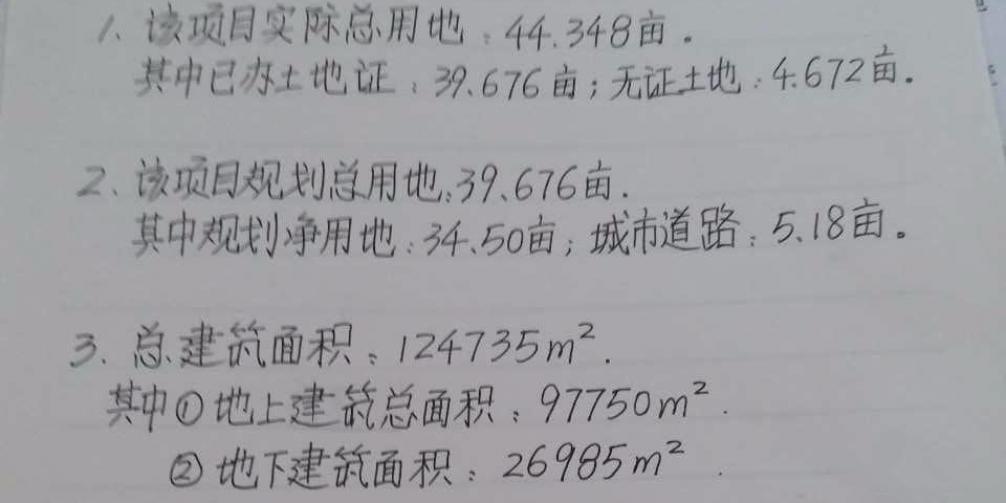 1. 该项目实际总用地：44.348亩。
其中已办土地证：39.676亩；无证土地：4.672亩.
2、该项目规划总用地:39.676亩.
其中规划净用地:34.50亩；城市道路：5.18亩。
3. 总建筑面积：124735m².
其中①地上建筑总面积：97750m².
②地下建筑面积：26985m².